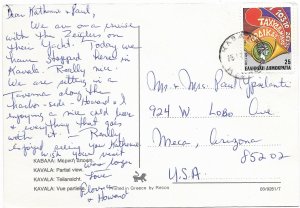 Dear Kathrine + Paul,
We are on a cruise
with the Zeiglers on
their Yacht. Today we
have stopped here in
Kavala. Really nice.
We are sitting in a
taverna along the
harbor-side. Howard & I
enjoying a nice cold beer
+ everything that goes
with it. Really
enjoyed seeing you Kathrine
I wish your visit
was longer
Love
+ Howard
ΚΑΒΑΛΑ: Μερική άποψη
KAVALA: Partial view
KAVALA: Teilansicht
KAVALA: Vue partielle
Printed in Greece by Rekos
Mr. & Mrs. Paul
924 W Lobo Ave
Mesa, Arizona
85202
U.S.A.
ΤΑΧΥΔΡΟΜΙΚΟΣ
ΚΩΔΙΚΑΣ
25
ΕΛΛΗΝΙΚΗ ΔΗΜΟΚΡΑΤΙΑ